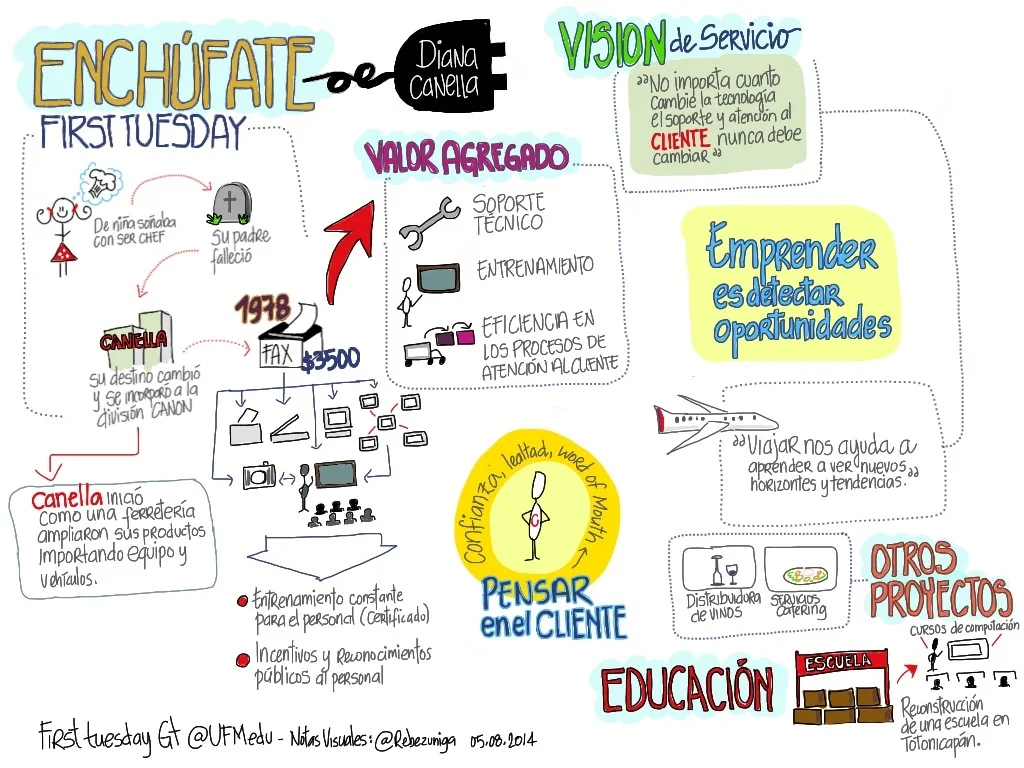 ENCHÚFATE
Diana
Canella
FIRST TUESDAY
De niña soñaba
con SER CHEF
Su padre
falleció
CANELLA
Su destino cambió
y se incorporó a la
división CANON
1978
FAX
$3500
Canella inició
como una ferretería
ampliaron sus productos
importando equipo y
vehículos.
Entrenamiento constante
para el personal (Certificado)
Incentivos y Reconocimientos
públicos al personal
VALOR AGREGADO
SOPORTE
TÉCNICO
ENTRENAMIENTO
EFICIENCIA EN
LOS PROCESOS DE
ATENCIÓN AL CLIENTE
Confianza, lealtad, word of Mouth
C
PENSAR
en el CLIENTE
VISION de Servicio
"No importa cuanto
cambie la tecnología
el soporte y atención al
CLIENTE nunca debe
cambiar"
Emprender
es detectar
oportunidades
"Viajar nos ayuda a
aprender a ver nuevos
horizontes y tendencias."
OTROS
PROYECTOS
Distribuidora
de VINOS
SERVICIOS
Catering
EDUCACIÓN
ESCUELA
CURSOS de computación
Reconstrucción
de una escuela en
Totonicapán.
First tuesday Gt @UFMedu - Notas Visuales: @Rebezuniga 05.08.2014